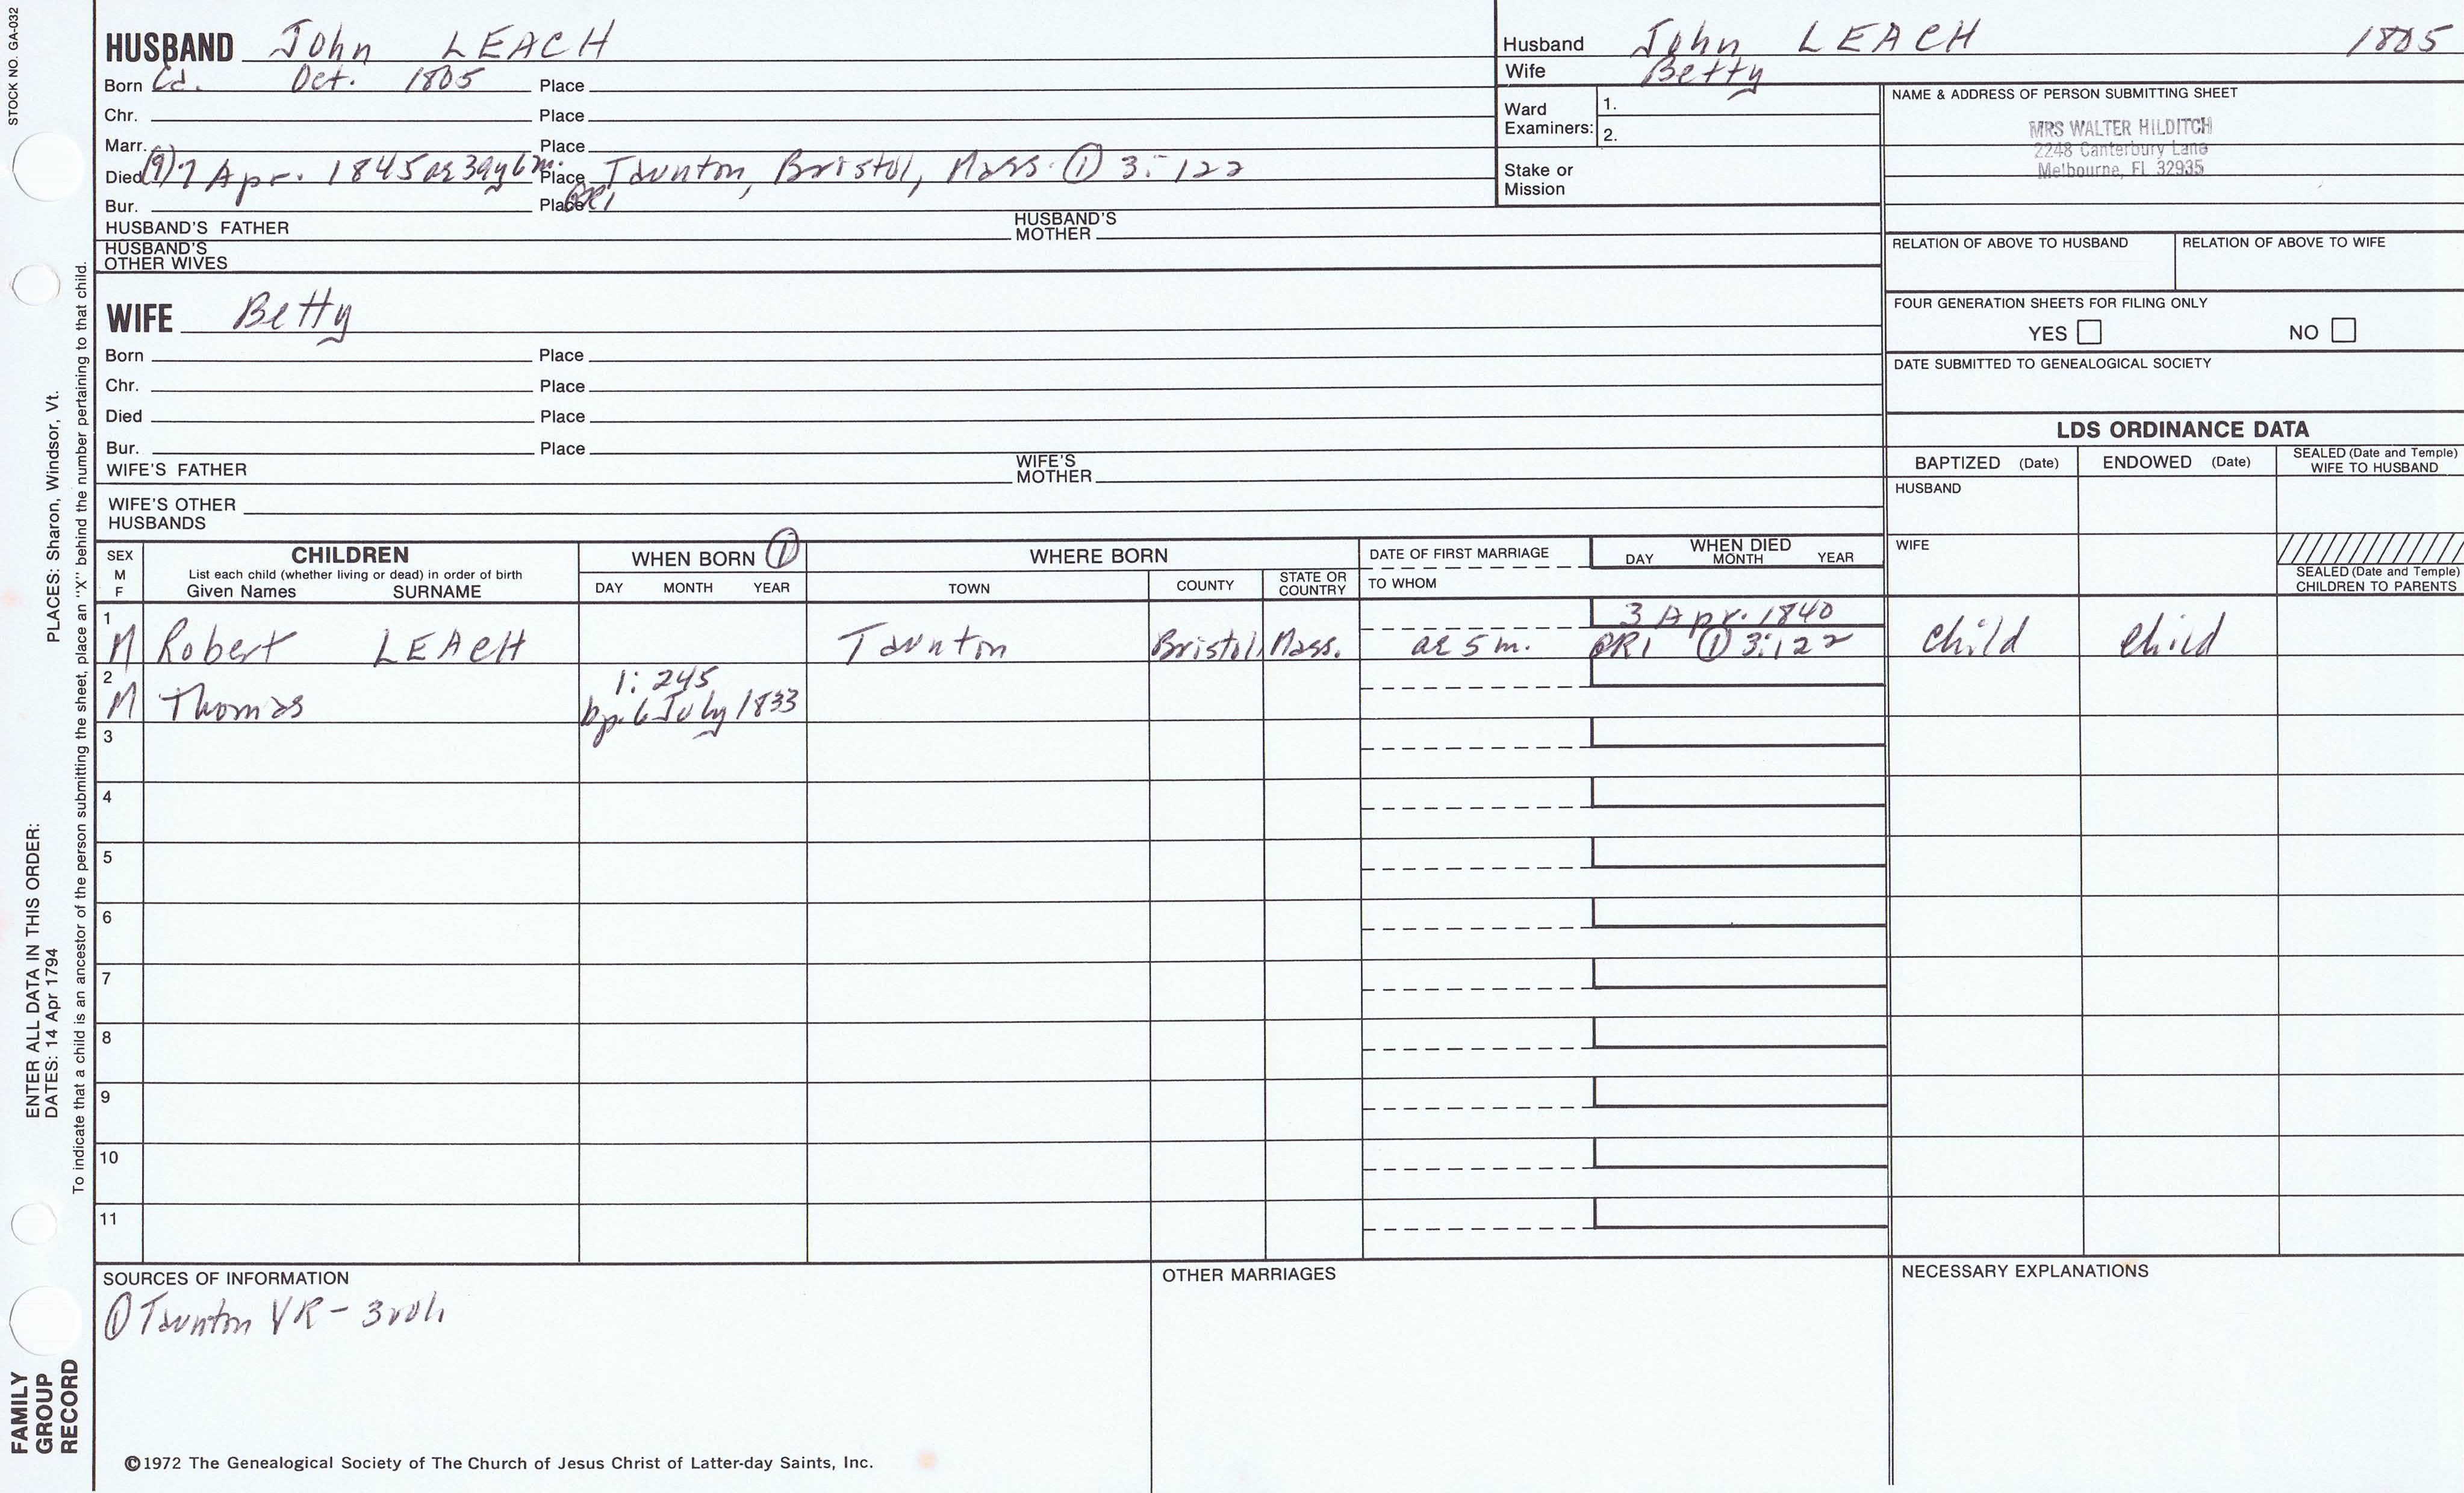 STOCK NO. GA-032
HUSBAND John LEACH
Born Cd. Oct. 1805 Place
Chr. Place
Marr. Place
Died (9) 7 Apr. 1845 ae 39y 6m. Place Taunton, Bristol, Mass. ① 3:122
Bur. Place GR1
HUSBAND'S FATHER HUSBAND'S MOTHER
HUSBAND'S OTHER WIVES
WIFE Betty
Born Place
Chr. Place
Died Place
Bur. Place
WIFE'S FATHER WIFE'S MOTHER
WIFE'S OTHER HUSBANDS
Husband John LEACH 1805
Wife Betty
Ward Examiners: 1.
2.
Stake or Mission
NAME & ADDRESS OF PERSON SUBMITTING SHEET
MRS WALTER HILDITCH
2248 Canterbury Lane
Melbourne, FL 32935
RELATION OF ABOVE TO HUSBAND RELATION OF ABOVE TO WIFE
FOUR GENERATION SHEETS FOR FILING ONLY
YES NO
DATE SUBMITTED TO GENEALOGICAL SOCIETY
LDS ORDINANCE DATA
BAPTIZED (Date) ENDOWED (Date) SEALED (Date and Temple) WIFE TO HUSBAND
HUSBAND
WIFE
SEALED (Date and Temple) CHILDREN TO PARENTS
SEX M F
CHILDREN
List each child (whether living or dead) in order of birth
Given Names SURNAME
WHEN BORN ①
DAY MONTH YEAR
WHERE BORN
TOWN COUNTY STATE OR COUNTRY
DATE OF FIRST MARRIAGE
TO WHOM
WHEN DIED
DAY MONTH YEAR
1 3 Apr. 1840
M Robert LEACH Taunton Bristol, Mass. ae 5 m. GR1 ① 3:122 child child
2 1: 245
M Thomas bp. 6 July 1833
3
4
5
6
7
8
9
10
11
SOURCES OF INFORMATION
① Taunton VR - 3 vols
OTHER MARRIAGES
NECESSARY EXPLANATIONS
©1972 The Genealogical Society of The Church of Jesus Christ of Latter-day Saints, Inc.
FAMILY GROUP RECORD
ENTER ALL DATA IN THIS ORDER:
DATES: 14 Apr 1794
PLACES: Sharon, Windsor, Vt.
To indicate that a child is an ancestor of the person submitting the sheet, place an "X" behind the number pertaining to that child.